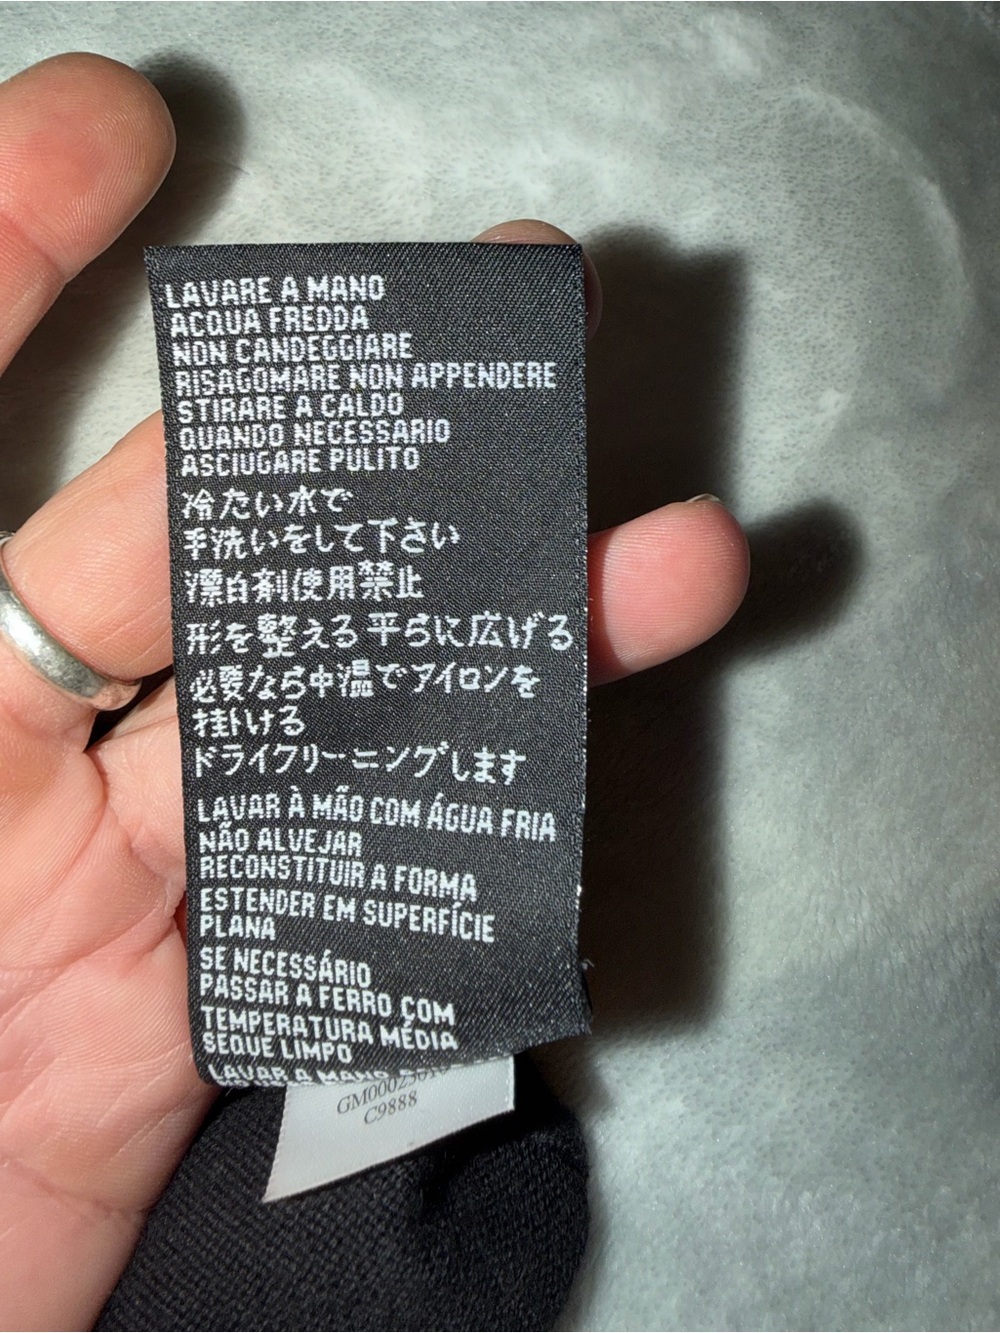 LAVARE A MANO
ACQUA FREDDA
NON CANDEGGIARE
RISAGOMARE NON APPENDERE
STIRARE A CALDO
QUANDO NECESSARIO
ASCIUGARE PULITO
冷たい水で
手洗いをして下さい
漂白剤使用禁止
形を整える平らに広げる
必要なら中温でアイロンを
掛ける
ドライクリーニングします
LAVAR À MÃO COM ÁGUA FRIA
NÃO ALVEJAR
RECONSTITUIR A FORMA
ESTENDER EM SUPERFÍCIE
PLANA
SE NECESSÁRIO
PASSAR A FERRO COM
TEMPERATURA MÉDIA
SEQUE LIMPO
LAVAR A MANO
C9888